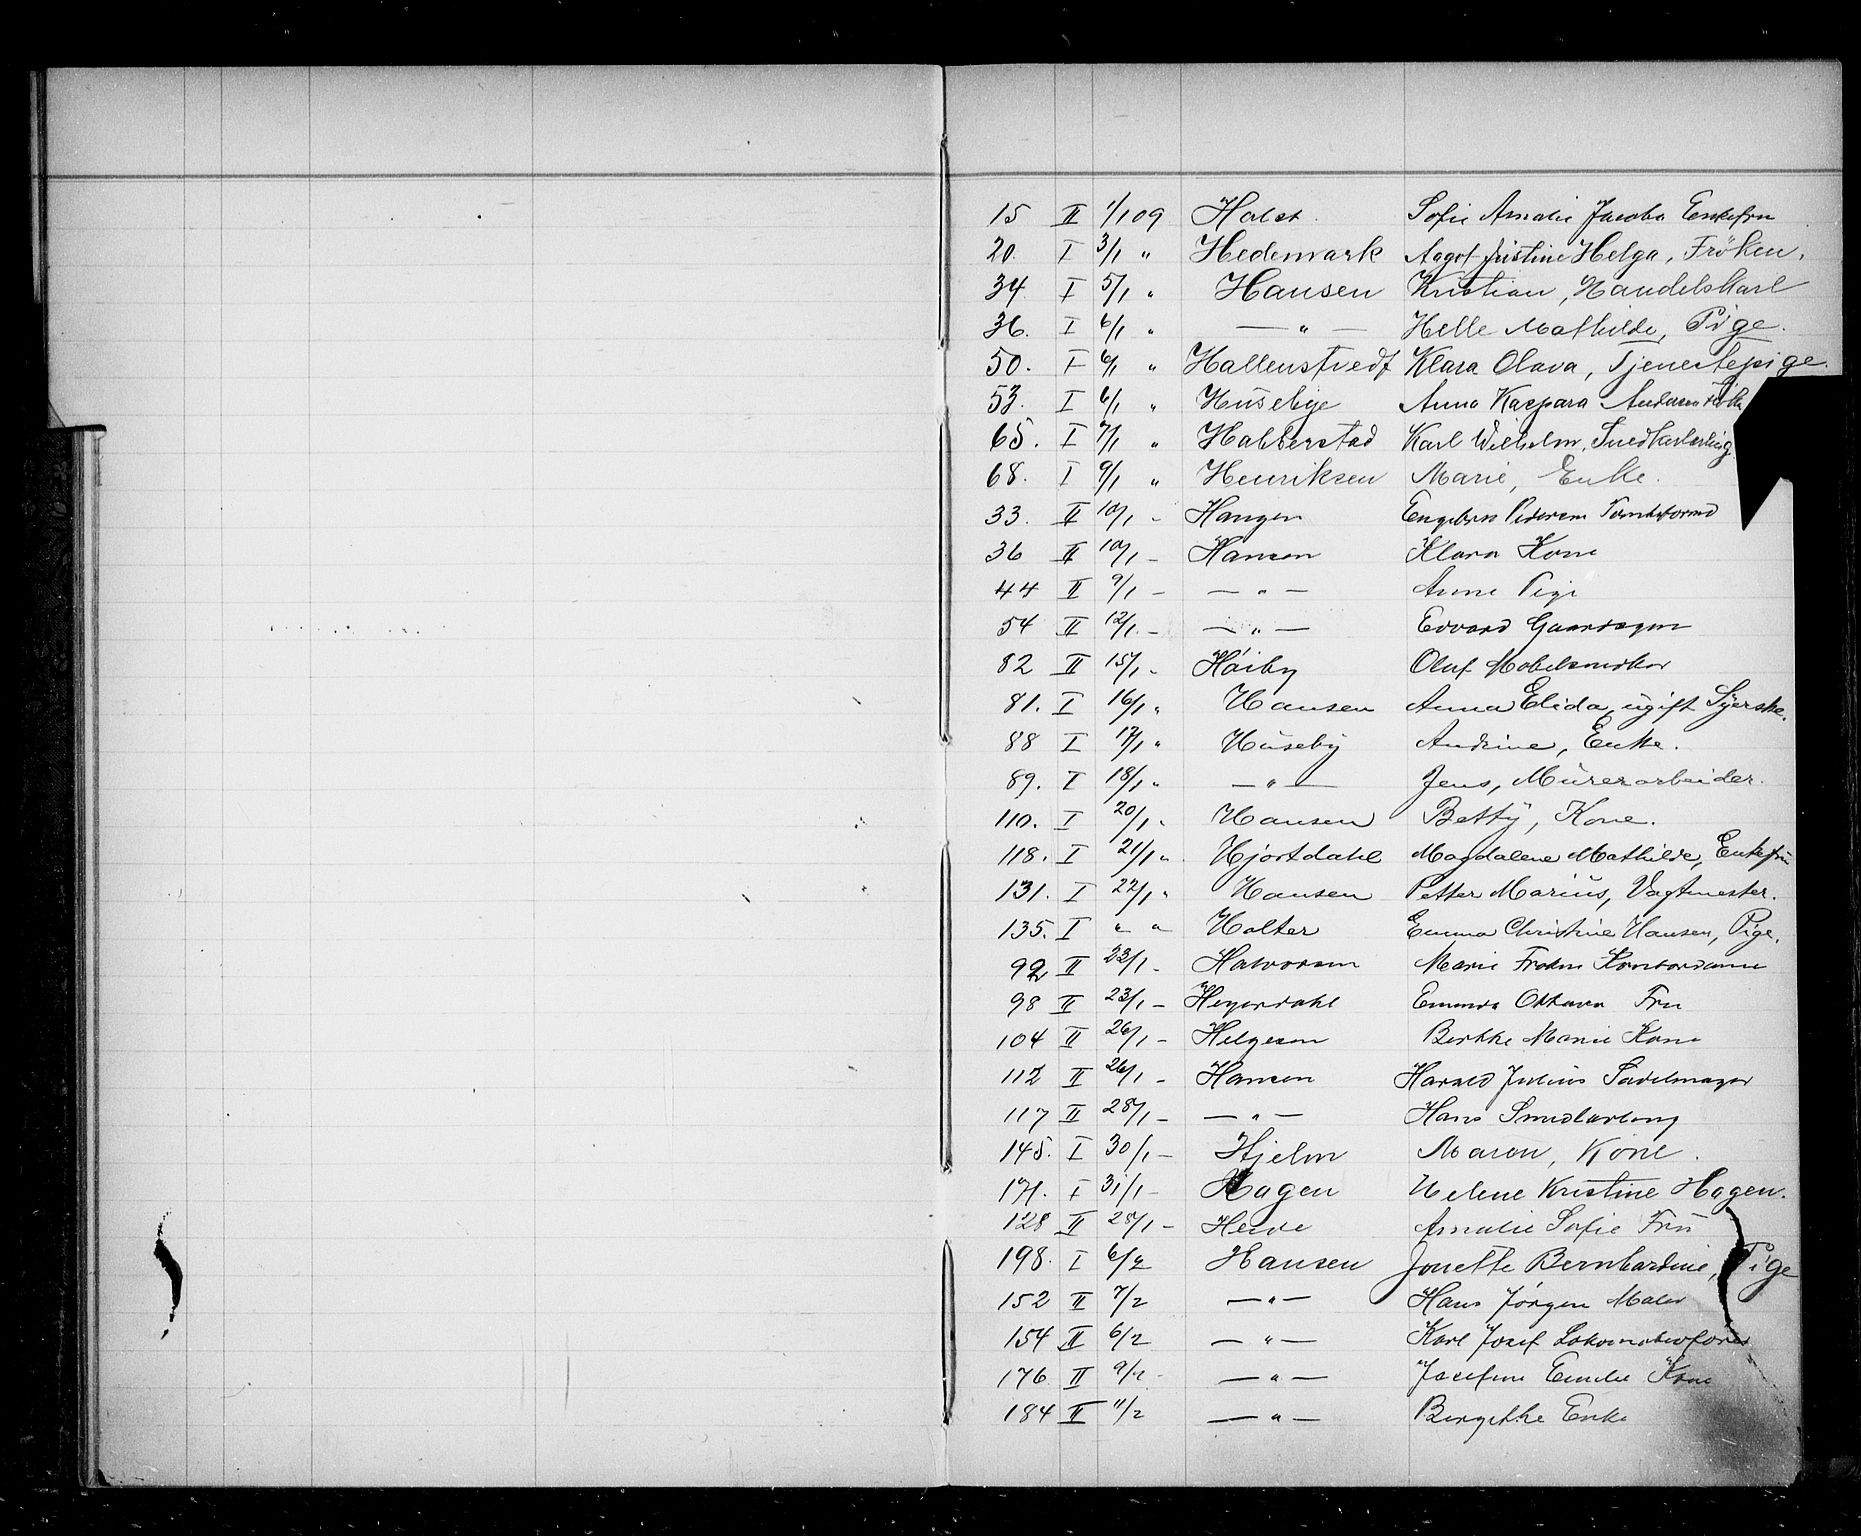 15 II 1/1 09 Holst Sofie Amalie Jacoba Enkefru
20. I 3/1 " Hedemark Aagot Justine Helga, Fröken.
34 I 5/1 " Hansen Kristian, Handelskarl
36. I 6/1 " — " — Helle Mathilde, Pige.
50. I 6/1 " Hallenstvedt Klara Olava, Tjenestepige.
53. I 6/1 " Huseby Anna Kaspara Andersen
65. I 7/1 " Halberstad Karl Wilhelm, Snedkerlærling
68. I 9/1 " Henriksen Marie, Enke.
33. II 10/1 - Haugen Engebret Pedersen
36 II 10/1 - Hansen Klara Kone
44 II 9/1 - — " — Anne Pige
54 II 12/1 - — " — Edvard Gaardsgut
82 II 15/1 - Höiby Oluf Mobelsnedker
81. I 16/1 " Hansen Anna Elida, ugift Syerske.
88 I 17/1 " Huseby Andrine, Enke.
89. I 18/1 " — " — Jens, Murerarbeider.
110. I 20/1 " Hansen Betty, Kone.
118. I 21/1 " Hjortdahl Magdalene Mathilde, Enkefru
131. I 22/1 " Hansen Petter Marius, Vagtmester.
135. I " " Holter Emma Christine Hansen, Pige.
92 II 23/1 - Halvorsen Marie Frøken Kontordame
98 II 23/1 - Heyerdahl Emma Ottava Fru
104 II 26/1 - Helgesen Berthe Marie Kone
112 II 26/1 - Hansen Harald Julius Sadelmager
117 II 28/1 - — " — Hans Smedlærling
145. I 30/1 - Hjelm Maren, Kone.
171. I 31/1 - Hagen Helene Kristine Hagen.
128 II 28/1 - Heide Amalie Sofie Fru
198. I 6/2 Hansen Jonette Bernhardine, Pige
152 II 7/2 — " — Hans Jørgen Maler
154 II 6/2 — " — Karl Josef Lokomotivfører
176 II 9/2 - — " — Josefine Emilie Kone
184 II 11/2 — " — Bergithe Enke